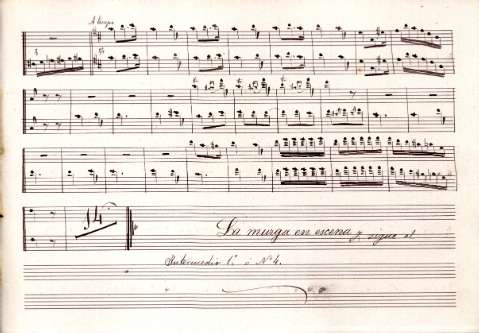 A tempo
14
La murga en escena y sigue el
Intermedio 1º ó Nº 4.